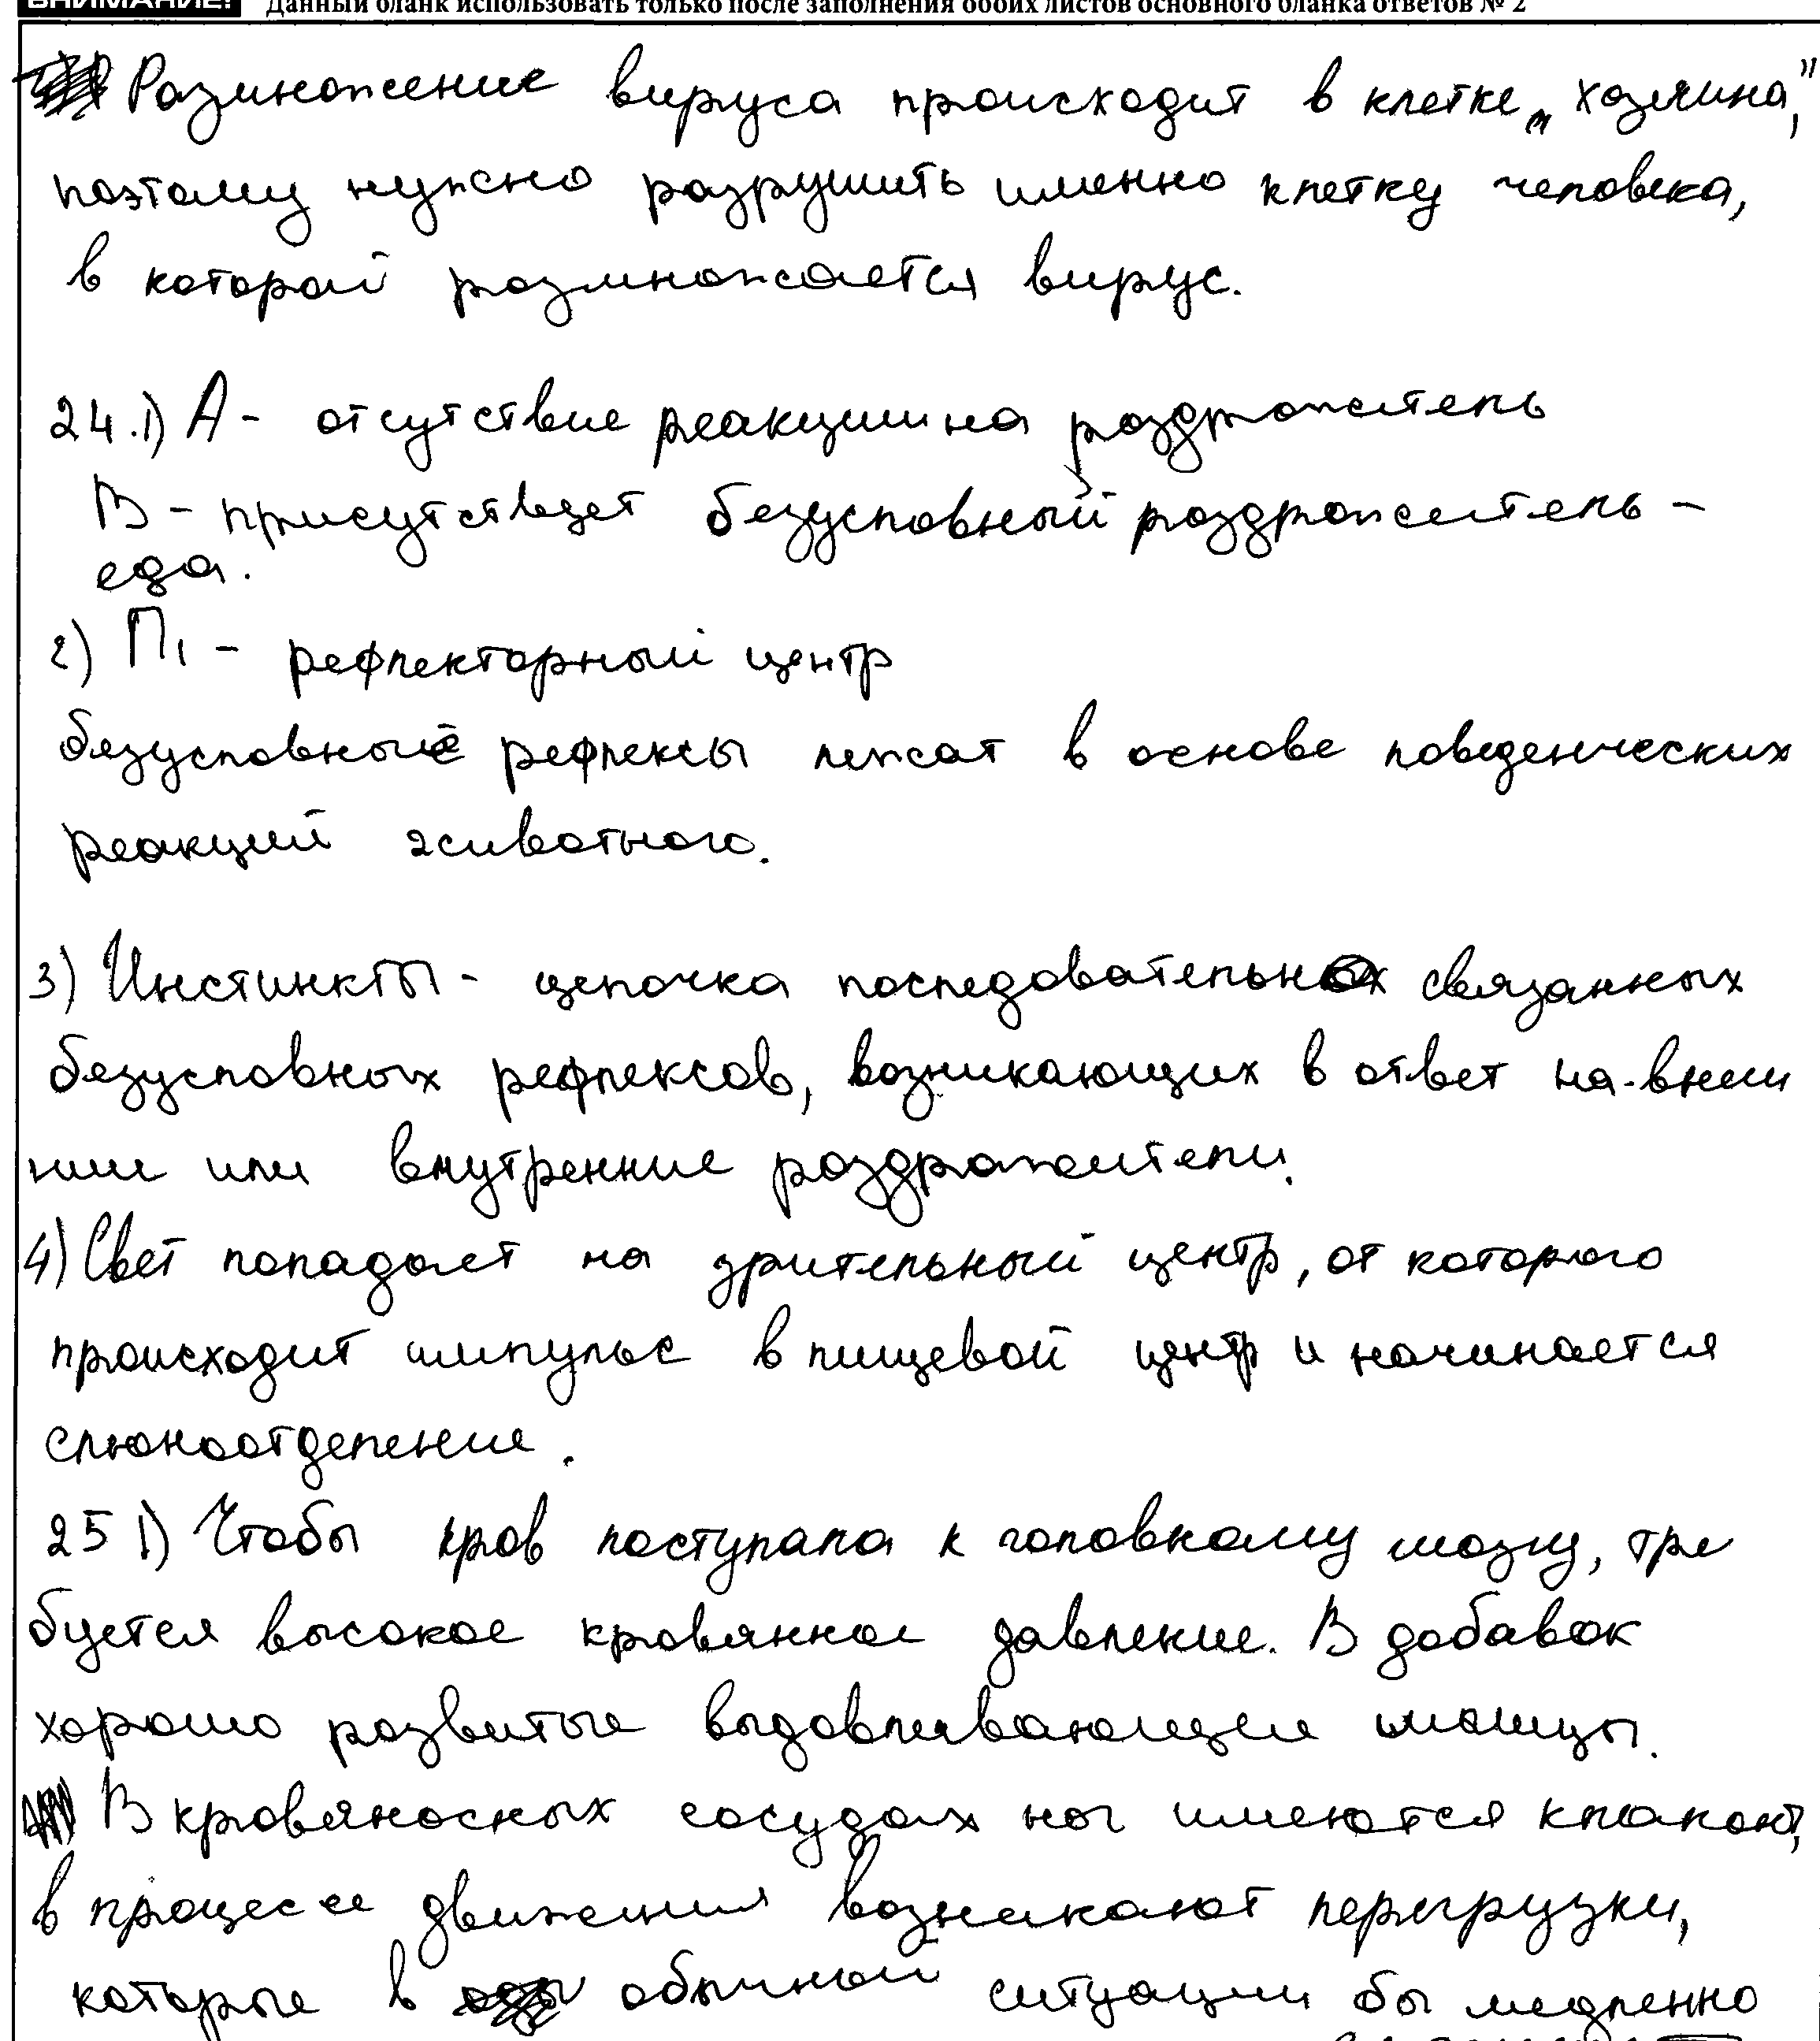 ВНИМАНИЕ! Данный бланк использовать только после заполнения обоих листов основного бланка ответов № 2
Размножение вируса происходит в клетке „хозяина",
поэтому нужно разрушить именно клетку человека,
в которой размножается вирус.
24.1) А - отсутствие реакции на раздражитель
В - присутствует безусловный раздражитель -
еда.
2) П1 - рефлекторный центр
безусловные рефлексы лежат в основе поведенческих
реакций животного.
3) Инстинкты - цепочка последовательных связанных
безусловных рефлексов, возникающих в ответ на внеш
ние или внутренние раздражители.
4) Свет попадает на зрительный центр, от которого
происходит импульс в пищевой центр и начинается
слюноотделение.
25 1) Чтобы кров поступала к головному мозгу, тре
буется высокое кровянное давление. В добавок
хорошо развитые выдавливающие мышцы.
В кровяносных сосудах ног имеются клапоны,
в процессе движения возникают перегрузки,
которые в обычной ситуации бы медленно